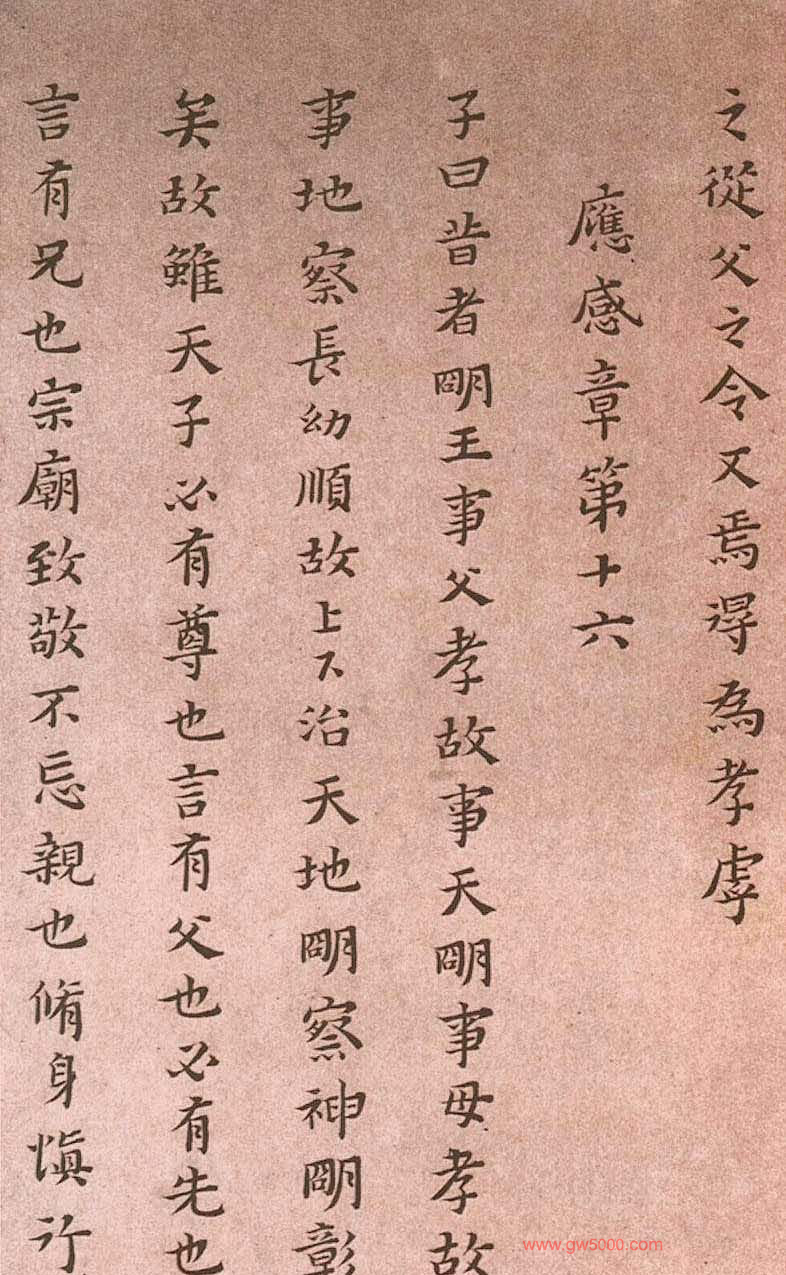 之從父之令又焉得為孝虖
應感章第十六
子曰昔者明王事父孝故事天明事母孝故
事地察長幼順故上下治天地明察神明彰
矣故雖天子必有尊也言有父也必有先也
言有兄也宗廟致敬不忘親也脩身慎行
www.gw5000.com